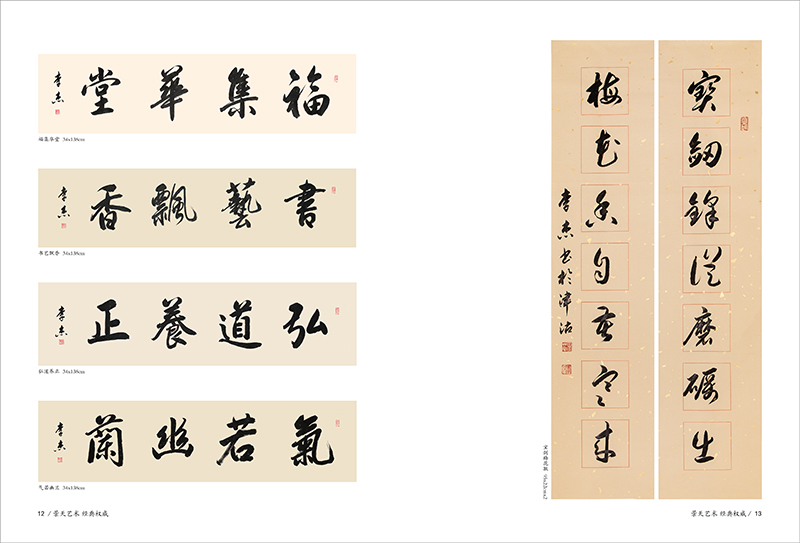 福集華堂
李杰
福集华堂 34x138cm
書藝飄香
李杰
书艺飘香 34x138cm
弘道養正
李杰
弘道养正 34x138cm
氣若幽蘭
李杰
气若幽兰 34x138cm
12 / 景天艺术 经典权威
寳劒鋒從磨礪出
梅花香自苦寒来
李杰书於津沽
宝剑梅花联
景天艺术 经典权威 / 13